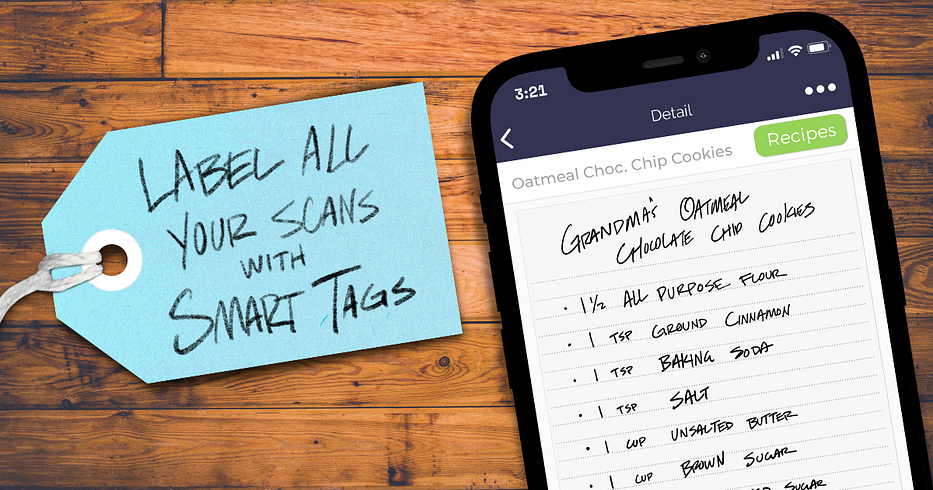 LABEL ALL
YOUR SCANS
WITH
SMART TAGS
3:21
Detail
Oatmeal Choc. Chip Cookies
Recipes
GRANDMA'S OATMEAL
CHOCOLATE CHIP COOKIES
• 1 1/2 ALL PURPOSE FLOUR
• 1 TSP GROUND CINNAMON
• 1 TSP BAKING SODA
• 1 TSP SALT
• 1 CUP UNSALTED BUTTER
• 1 CUP BROWN SUGAR
SUGAR